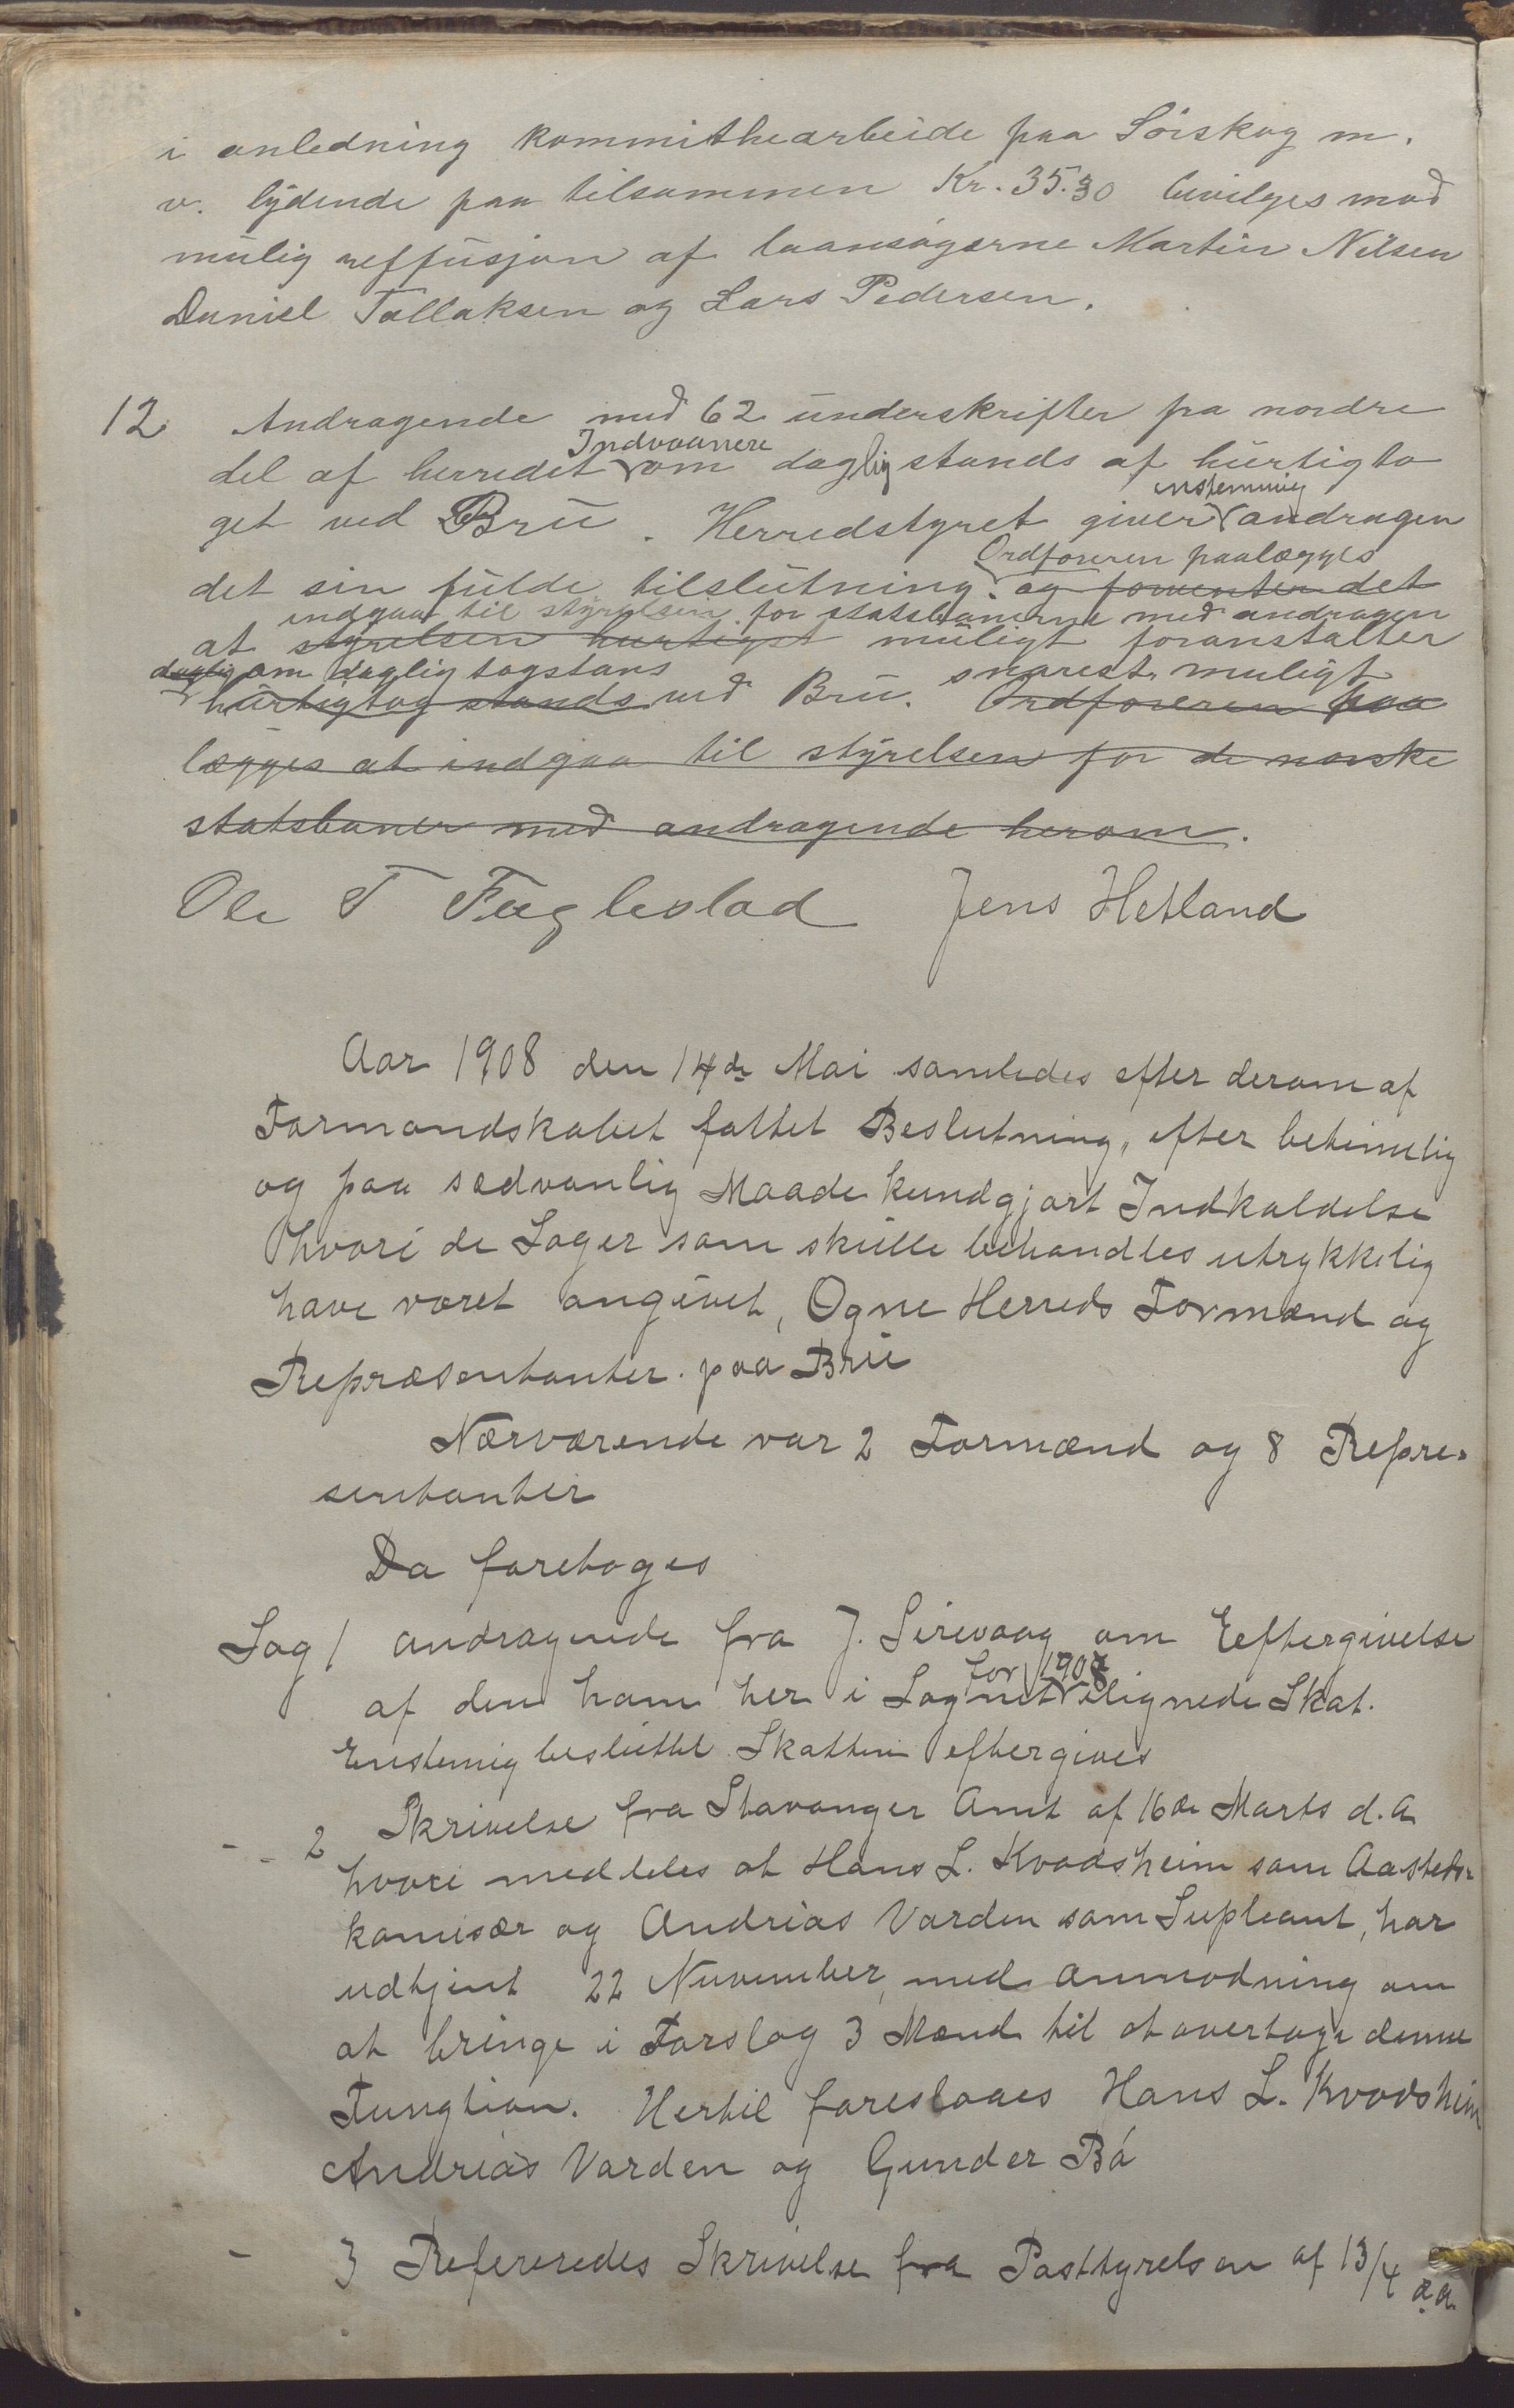 i anledning kommithearbeide paa Sörskog m.
v. lydende paa tilsammen Kr. 35.30 bevilges mod
mulig reffusjon af laansøgerne Martin Nilsen
Daniel Tallaksen og Lars Pedersen.
12 Andragende med 62 underskrifter fra nordre
Indvaanere
del af herredet om daglig stands af hurtigto
enstemmig
get ved Bru. Herredstyret giver andragen
Ordføreren paalægges
det sin fulde tilslutning. og forventer det
indgaa til styrelsen for statsbanerne med andragen
at styrelsen hurtigst muligt foranstalter
daglig om daglig togstans snarest muligt
hurtigtog stands ved Bru. Ordføreren paa
lægges at indgaa til styrelsen for de norske
statsbaner med andragende herom.
Ole T Fuglestad Jens Hetland
Aar 1908 den 14de Mai samledes efter derom af
Formandskabet fattet Beslutning, efter betimelig
og paa sædvanlig Maade kundgjort Indkaldelse
hvori de Sager som skulle behandles utrykkelig
have været angivet, Ogne Herreds Formænd og
Repræsentanter. paa Bru
Nærværende var 2 Formænd og 8 Repre-
sentanter
Da foretoges
Sag 1 andragende fra J. Sirevaag om Eeftergivelse
for 1908
af den ham her i Sognet ilignede Skat.
Enstemig besluttet Skatten eftergives
- - 2 Skrivelse fra Stavanger Amt af 16de Marts d.A
hvori meddeles at Hans L. Kvadsheim som Aasteds-
komisær og Andreas Varden som Supleant, har
udtjent 22 November, med Anmodning om
at bringe i Forslag 3 Mænd til at overtage denne
Fungtion. Hertil foreslaaes Hans L. Kvadsheim
Andreas Varden og Gunder Bö
- 3 Refereredes Skrivelse fra Posttyrelsen af 13/4 d.A.